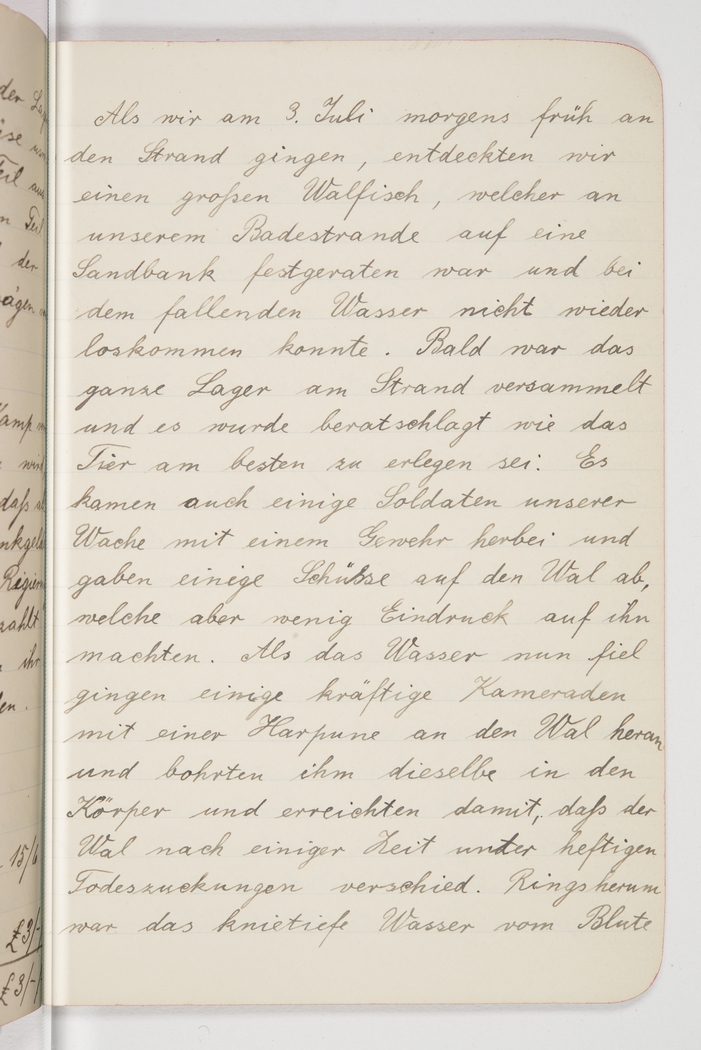 Als wir am 3. Juli morgens früh an
den Strand gingen, entdeckten wir
einen großen Walfisch, welcher an
unserem Badestrande auf eine
Sandbank festgeraten war und bei
dem fallenden Wasser nicht wieder
loskommen konnte. Bald war das
ganze Lager am Strand versammelt
und es wurde beratschlagt wie das
Tier am besten zu erlegen sei. Es
kamen auch einige Soldaten unserer
Wache mit einem Gewehr herbei und
gaben einige Schüsse auf den Wal ab,
welche aber wenig Eindruck auf ihn
machten. Als das Wasser nun fiel
gingen einige kräftige Kameraden
mit einer Harpune an den Wal heran
und bohrten ihm dieselbe in den
Körper und erreichten damit, daß der
Wal nach einiger Zeit unter heftigen
Todeszuckungen verschied. Ringsherum
war das knietiefe Wasser vom Blute
der
Teil
der
Kamp
daß
zahlt
ihr
15/6
£3/-
£3/-